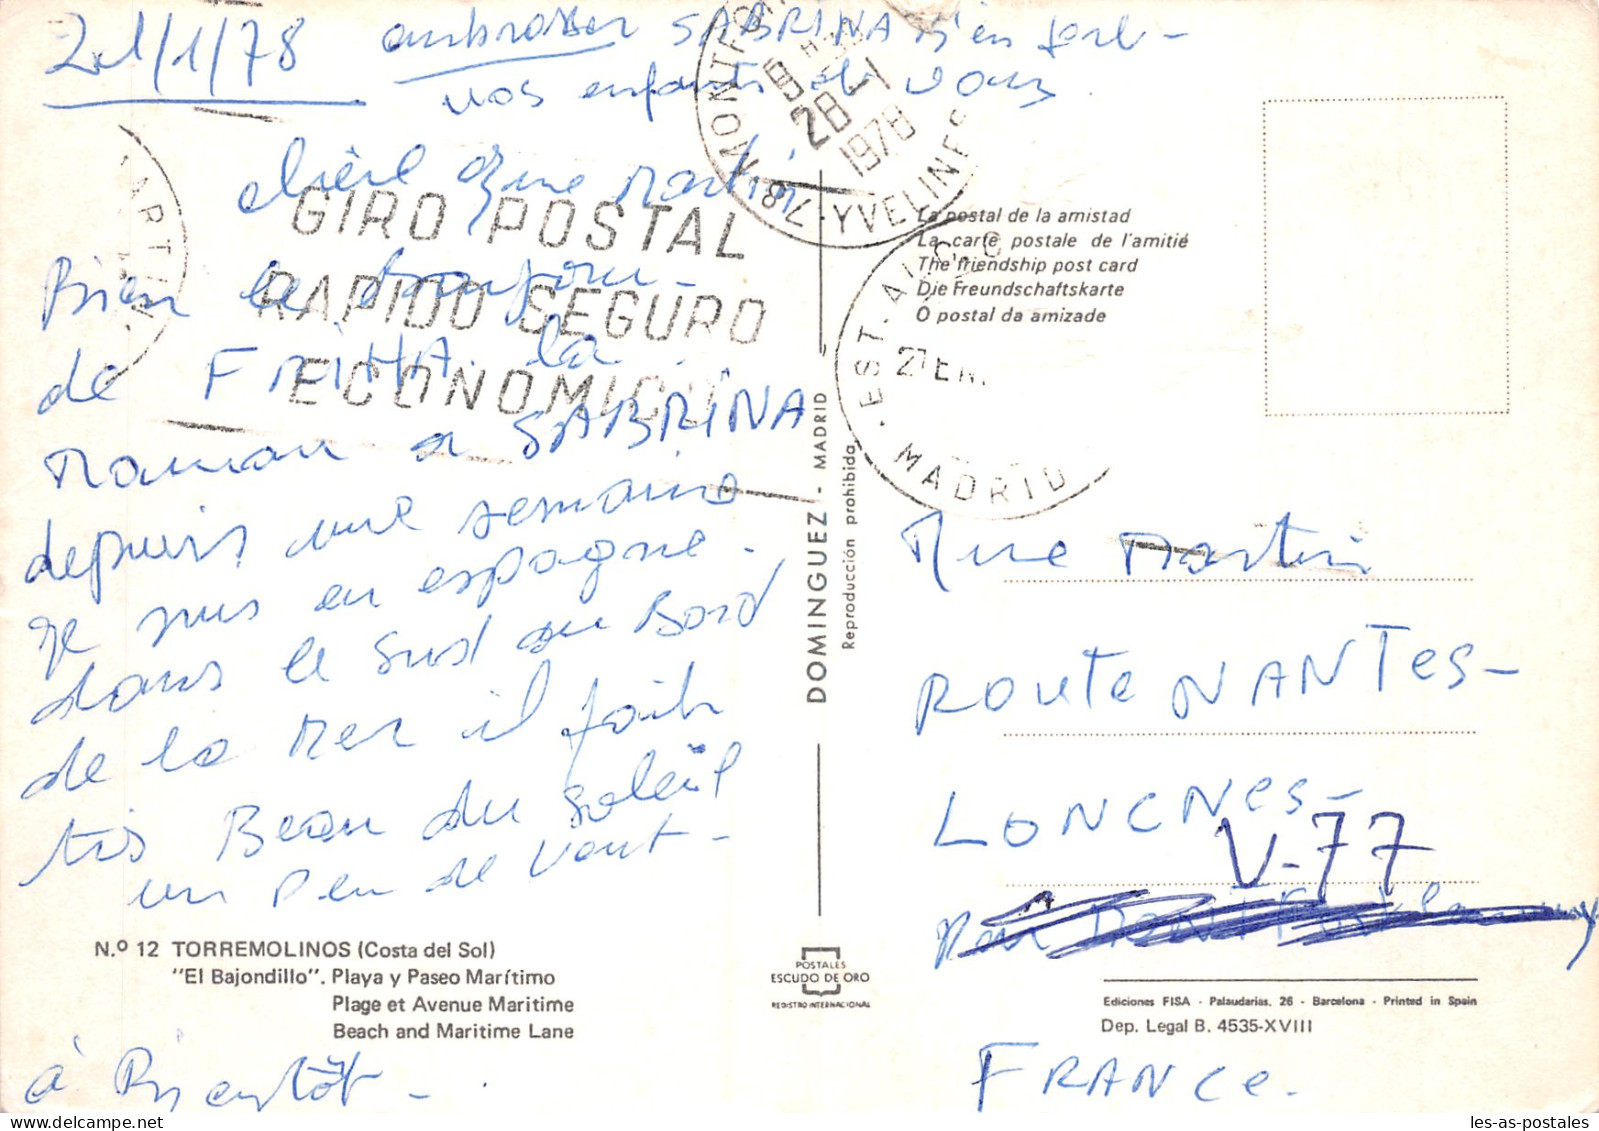 21/1/78 ambrasser SABRINA bien fort -
vos enfants et vous
chère Mme Martin
Bien le bonjour -
de FRIHA. la
maman a SABRINA
depuis une semaine
je suis en espagne.
dans le sud au Bord
de la Mer il fait
tris Beau du soleil
un peu de vent -
à Bientôt -
GIRO POSTAL
RAPIDO SEGURO
ECONOMICO
78 - MONTFO
9 H
28 - 1
1978
YVELINES
EST.
27 EN.
MADRID
La postal de la amistad
La carte postale de l'amitié
The friendship post card
Die Freundschaftskarte
O postal da amizade
DOMINGUEZ - MADRID
Reproducción prohibida
Mme Martin
ROUTE NANTES -
LONCNES -
V-77
FRANCE.
N.º 12 TORREMOLINOS (Costa del Sol)
"El Bajondillo". Playa y Paseo Marítimo
Plage et Avenue Maritime
Beach and Maritime Lane
POSTALES
ESCUDO DE ORO
REGISTRO INTERNACIONAL
Ediciones FISA - Palaudarias, 26 - Barcelona - Printed in Spain
Dep. Legal B. 4535-XVIII
les-as-postales